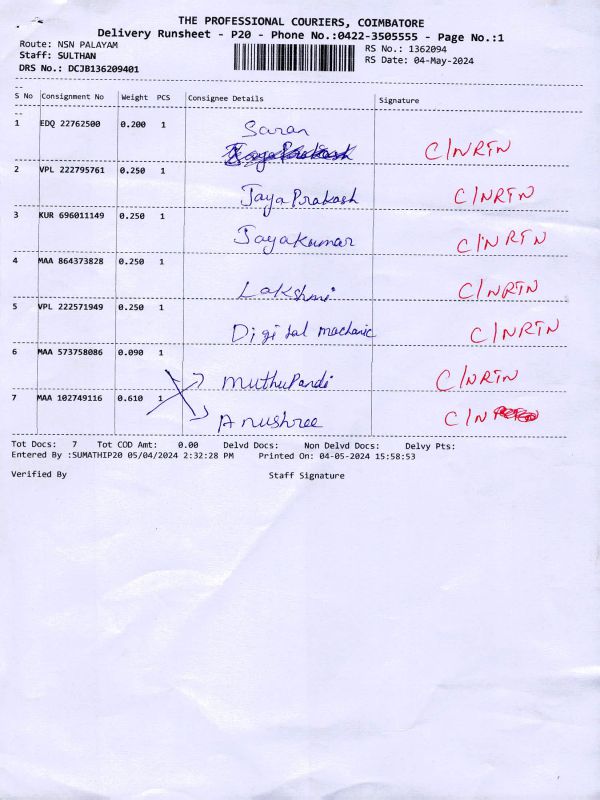 THE PROFESSIONAL COURIERS, COIMBATORE
Delivery Runsheet - P20 - Phone No.:0422-3505555 - Page No.:1
Route: NSN PALAYAM RS No.: 1362094
Staff: SULTHAN RS Date: 04-May-2024
DRS No.: DCJB136209401
S No Consignment No Weight PCS Consignee Details Signature
1 EDQ 22762500 0.200 1 Saran
C/NRTN
2 VPL 222795761 0.250 1 JayaPrakash C/NRTN
3 KUR 696011149 0.250 1 Jayakumar C/NRTN
4 MAA 864373828 0.250 1 Lakshmi C/NRTN
5 VPL 222571949 0.250 1 Digital machanic C/NRTN
6 MAA 573758086 0.090 1 muthuPandi C/NRTN
7 MAA 102749116 0.610 1 Anushree C/N
Tot Docs: 7 Tot COD Amt: 0.00 Delvd Docs: Non Delvd Docs: Delvy Pts:
Entered By :SUMATHIP20 05/04/2024 2:32:28 PM Printed On: 04-05-2024 15:58:53
Verified By Staff Signature